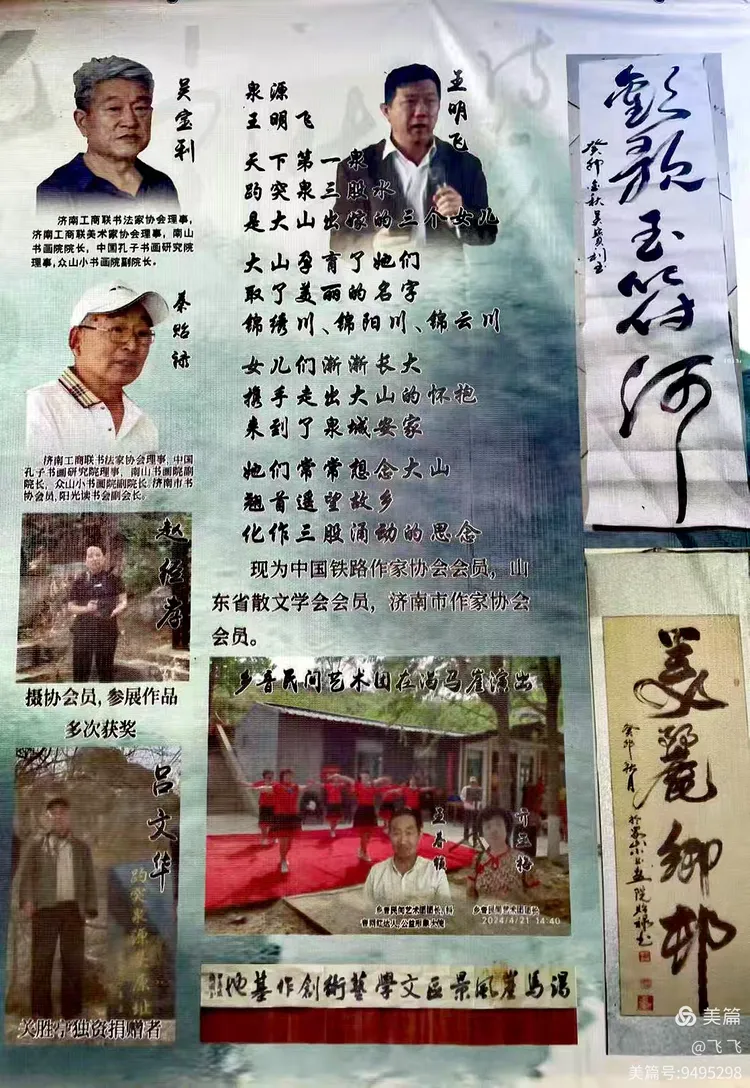 吴宝利
济南工商联书法家协会理事,
济南工商联美术家协会理事, 南山
书画院院长, 中国孔子书画研究院
理事, 众山小书画院副院长。
秦贻禄
济南工商联书法家协会理事, 中国
孔子书画研究院理事, 南山书画院副
院长, 众山小书画院副院长. 济南市书
协会员, 阳光读书会副会长。
赵经孝
摄协会员, 参展作品
多次获奖
吕文华
关胜亭独资捐赠者
王明飞
泉源
王明飞
天下第一泉
趵突泉三股水
是大山出嫁的三个女儿
大山孕育了她们
取了美丽的名字
锦绣川、锦阳川、锦云川
女儿们渐渐长大
携手走出大山的怀抱
来到了泉城安家
她们常常想念大山
翘首遥望故乡
化作三股涌动的思念
现为中国铁路作家协会会员, 山
东省散文学会会员, 济南市作家协会
会员。
乡音民间艺术团在渴马崖演出
乡音民间艺术团团长
2024/4/21 14:40
渴马崖風景區文學藝術創作基地
歡歌玉符河
美麗鄉邨
美篇
@飞飞
美篇号:9495298